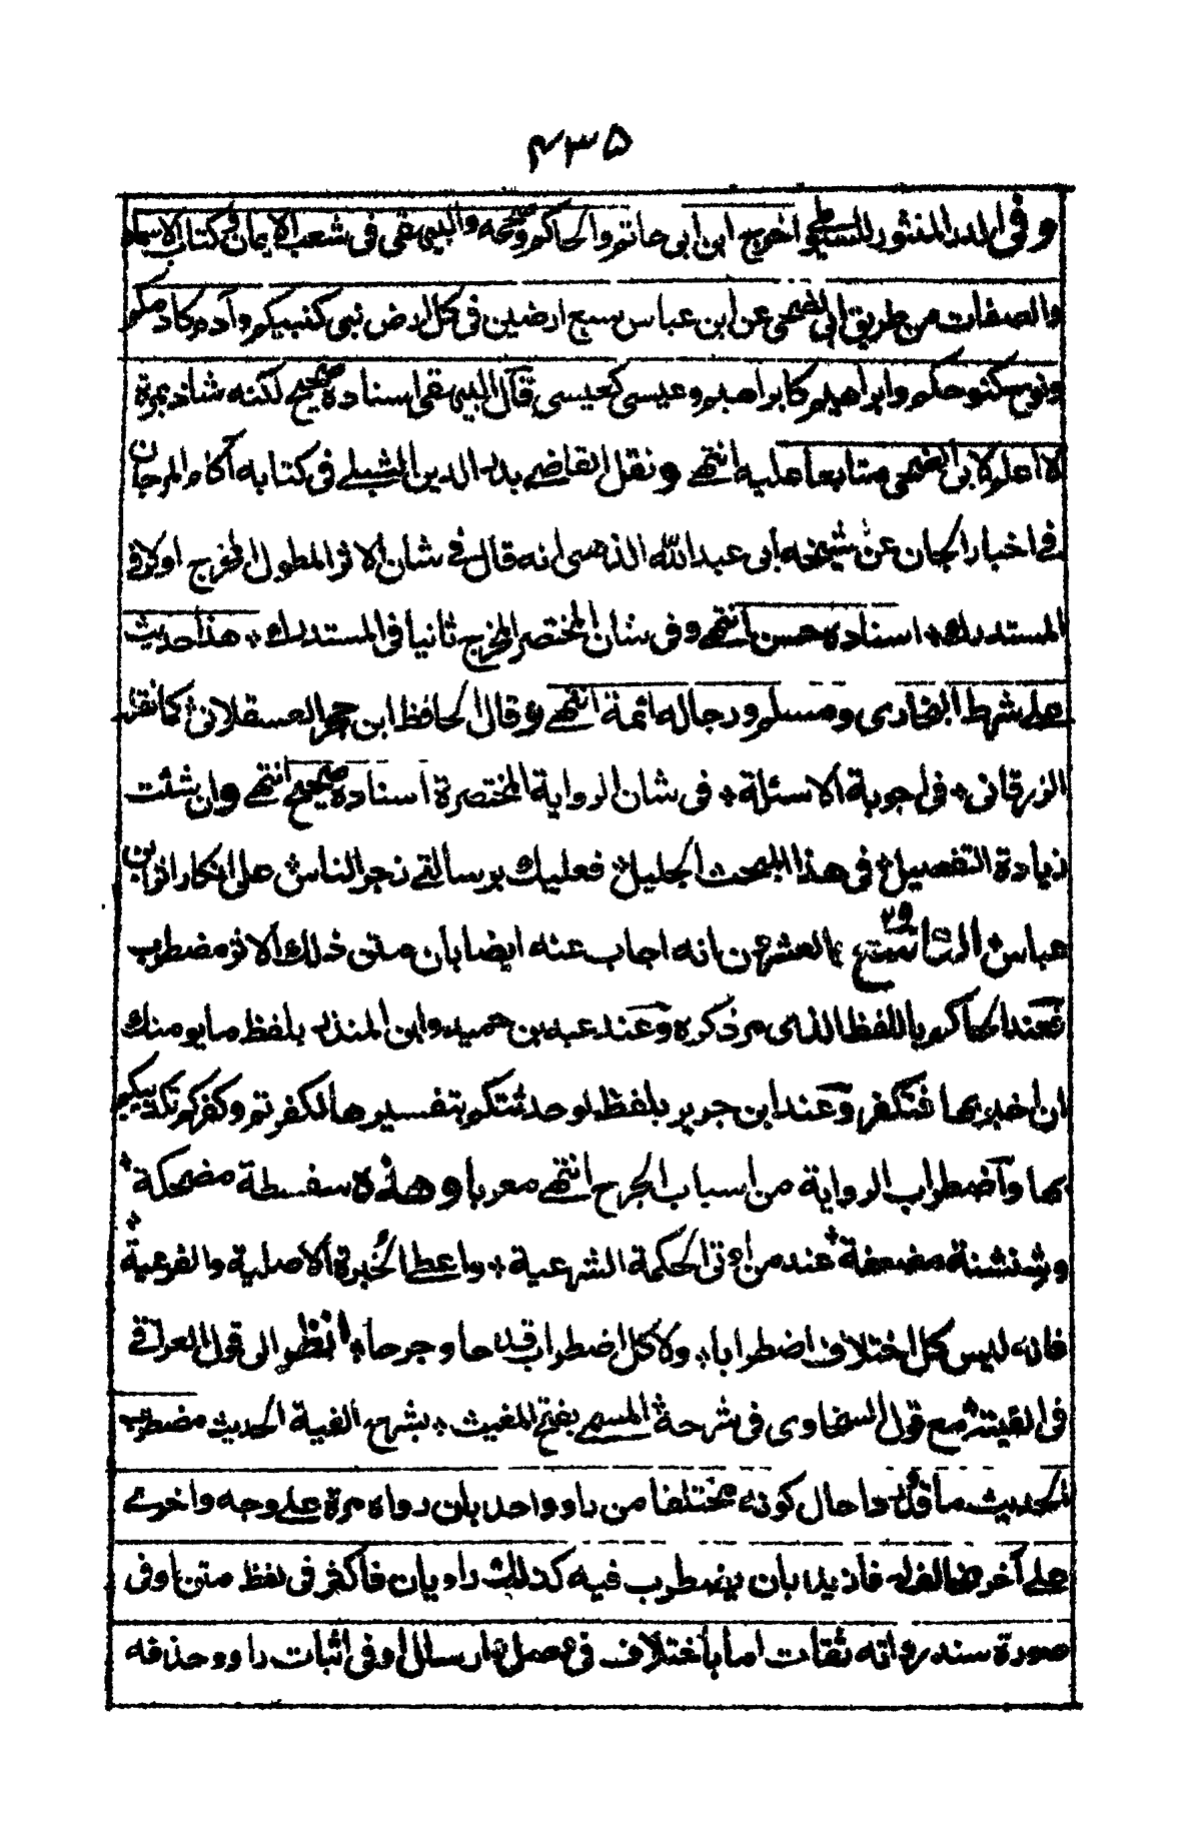 ۴۳۵
وفى الدر المنثور للسيوطى اخرج ابن ابى حاتم والحاكم وصححه والبيهقى فى شعب الايمان وفى كتاب الاسماء
والصفات من طريق ابى الضحى عن ابن عباس سبع ارضين فى كل ارض نبى كنبيكم وآدم كآدمكم
ونوح كنوحكم وابراهيم كابراهيم وعيسى كعيسى قال البيهقى اسناده صحيح لكنه شاذ بمرة
لا اعلم لابى الضحى متابعا عليه انتهى ونقل القاضى بدر الدين الشبلى فى كتابه آكام المرجان
فى اخبار الجان عن شيخه ابى عبد الله الذهبى انه قال فى شان الاثر المطول المخرج اولا فى
المستدرك اسناده حسن انتهى وفى شان المختصر المخرج ثانيا فى المستدرك هذا حديث
على شرط البخارى ومسلم ورجاله ائمة انتهى وقال الحافظ ابن حجر العسقلانى كما نقله
الزرقانى فى اجوبة الاسئلة فى شان الرواية المختصرة اسناده صحيح انتهى وان شئت
زيادة التفصيل فى هذا المبحث الجليل فعليك برسالتى زجر الناس على انكار اثر ابن
عباس التاسع والعشرون انه اجاب عنه ايضا بان متن ذلك الاثر مضطرب
فعند الحاكم باللفظ الذى مر ذكره وعند عبد بن حميد وابن المنذر بلفظ ما يومنك
ان اخبرك بها فتكفر وعند ابن جرير بلفظ لو حدثتكم بتفسيرها لكفرتم وكفركم تكذيبكم
بها واضطراب الرواية من اسباب الجرح انتهى معربا وهذه سفسطة مضحكة
وشنشنة مضعفة عند من اوتى الحكمة الشرعية واعطى الخبرة الاصلية والفرعية
فانه ليس كل اختلاف اضطرابا ولا كل اضطراب قدحا وجرحا انظر الى قول العراقى
فى الفيته مع قول السخاوى فى شرحه المسمى بفتح المغيث بشرح الفية الحديث مضطرب
الحديث ما قد وردا حال كونه مختلفا من راو واحد بان رواه مرة على وجه واخرى
على آخر مخالف له فازيدا بان يضطرب فيه كذلك راويان فاكثر فى لفظ متن او فى
صورة سند رواته ثقات اما باختلاف فى وصل وارسال او فى اثبات راو وحذفه